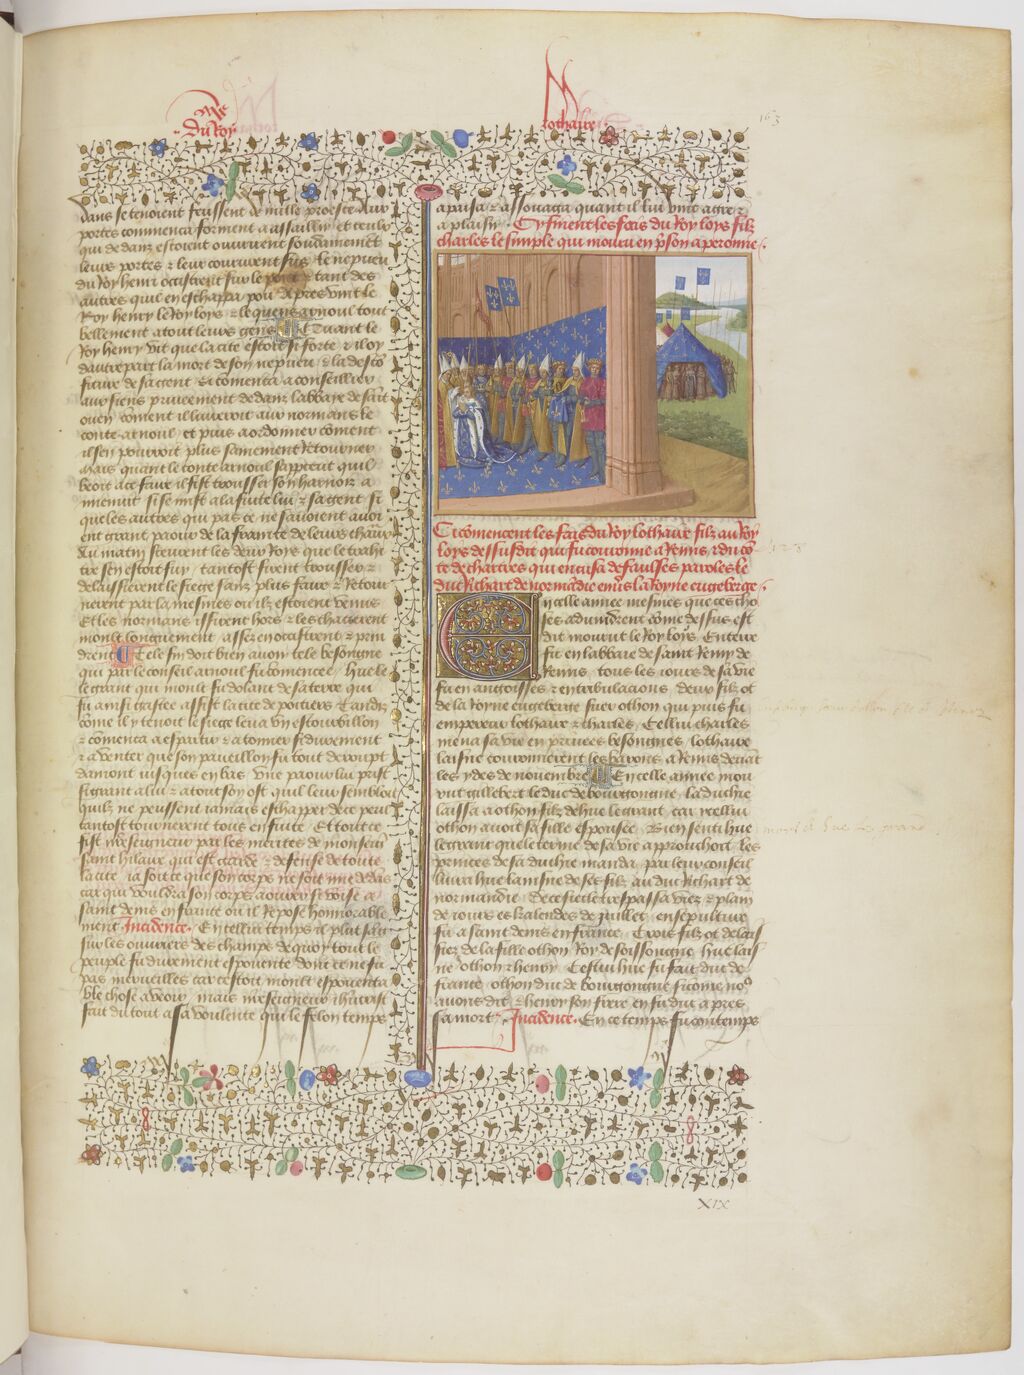 Du Roy
lothaire
163
dans se tenoient feussent de mille proesce Aux
portes commenca forment a assaillir et ceulx
qui dedanz estoient ouvrirent soudainemēt
leurs portes & leur coururent sus le nepueu
du Roy henri occistrent sur le pont & tant des
autres quil en eschappa pou Apres vint le
Roy henry le Roy loys & le quens arnoul tout
bellement a tout leurs gens Et quant le
Roy henry vit que la cite estoit si forte & il oy
dautre part la mort de son nepueu & la desco
fiture de sa gent Et comenca a conseillier
aux siens priveement dedanz labbaye de sait
ouen coment il lairoit aux normans le
conte arnoul et puis a ordonner coment
ilz sen pourroit plus sainement Retourner
Mais quant le conte arnoul sapperceut quil
beoit a ce faire il fist trousser son harnois a
mienuit si se mist a la fuite lui & sa gent si
que les autres qui pas ce ne savoient avoi
ent grant paour de la frainte de leurs chaux
Au matin sceurent les deux Roys que le trahi
tre sen estoit fuy tantost firent trousser &
delaissierent le siege sanz plus faire & Retour
nerent par la mesmes ou ilz estoient venus
Et les normans issirent hors & les chacierent
moult longuement assez en occistrent & prin
drent Tele fin doit bien avoir tele besongne
qui par le conseil arnoul fu comencee hue le
le grant qui moult fu dolant de sa terre qui
fu ainsi gastee assist la cite de poitiers Tandis
come il y tenoit le siege leva un estourbillon
& comenca a espartir & a tonner si durement
& a venter que son paveillon fu tout derompt
damont jusques en bas une paour lui prist
si grant a lui & a tout son ost quil leur sembloit
quilz ne peussent jamais eschapper de ce peril
tantost tournerent tous en fuite Et tout ce
fist nreseigneur par les merites de monseigr
saint hilaire qui est garde & defense de toute
la cite ja soit ce que son corps ne soit mie dedās
car qui vouldra son corps aourer si voise a
saint denis en france ou il Repose honnorable
ment Incidence. En cellui temps il plut sanc
sur les ouvriers des champs de quoy tout le
peuple fu durement espouente dont ce ne fu
pas merveilles car cestoit moult espouenta
ble chose a veoir mais nreseigneur ihucrist
fait du tout a sa voulente qui le felon temps
apaisa & assouaga quant il lui vint a gre &
a plaisir. Cy finent les fais du Roy loys filz
charles le simple qui mouru en psōn a peronne.
Ci comencent les fais du Roy lothaire filz au Roy
loys dessusdit qui fu couronne a Reins & du cō
te de chartres qui encusa de faulses paroles le
duc Richart de normādie envers la Royne engeberge.
En icelle annee mesmes que ces cho
ses advindrent come dessus est
dit mourut le Roy loys Enterre
fu en labbaie de saint Remy de
Reins tous les jours de sa vie
fu en angoisses & en tribulacions deux filz ot
de la Royne engeberge suer othon qui puis fu
empereur lothaire & charles Cellui charles
mena sa vie en privees besongnes lothaire
laisne couronnerent les barons a Reins devāt
les ydes de novembre En icelle annee mou
rut gillebert le duc de bourgongne la duchie
laissa a othon filz de hue le grant car icellui
othon avoit sa fille espousee Bien senti hue
le grant que le terme de sa vie approuchoit les
princes de sa duchie manda par leur conseil
livra hue lainsne de ses filz au duc Richart de
normandie De ce siecle trespassa viex & plain
de jours es kalendes de juillet ensepulture
fu a saint denis en france Trois filz ot delais
siez de la fille othon Roy de soissongne hue lais
ne othon & henry Cestui hue fu fait duc de
france othon duc de bourgongne si come noꝰ
avons dit & henry son frere en fu duc apres
sa mort. Incidence. En ce temps fu contemps
XIX